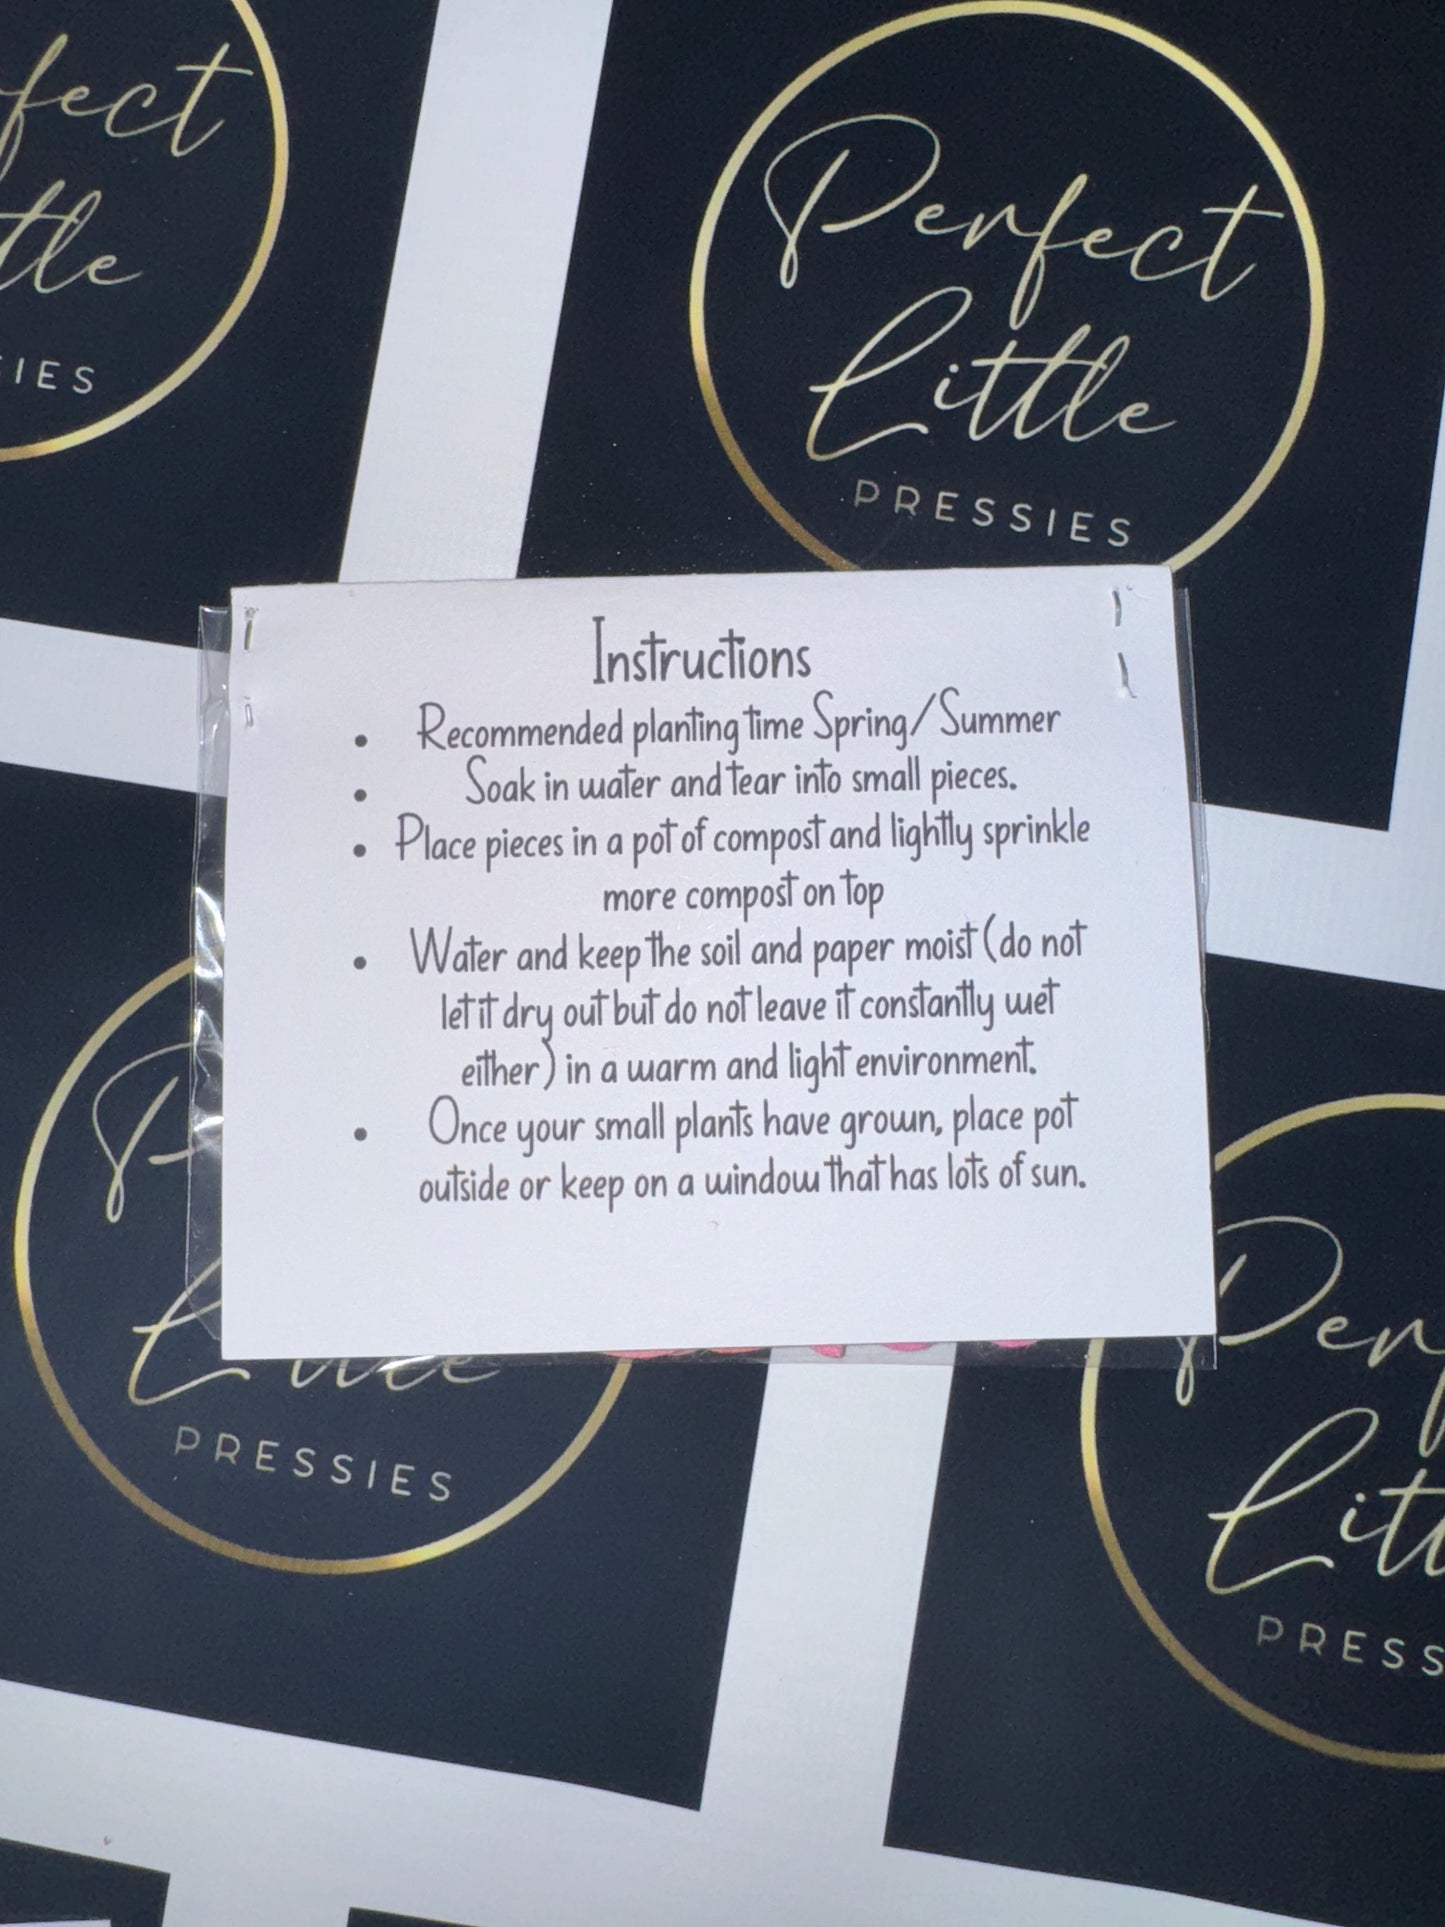 fect
tle
SIES
Perfect
Little
PRESSIES
Instructions
• Recommended planting time Spring/Summer
• Soak in water and tear into small pieces.
• Place pieces in a pot of compost and lightly sprinkle
more compost on top
• Water and keep the soil and paper moist (do not
let it dry out but do not leave it constantly wet
either) in a warm and light environment.
• Once your small plants have grown, place pot
outside or keep on a window that has lots of sun.
P
PRESSIES
Per
Litt
PRESS